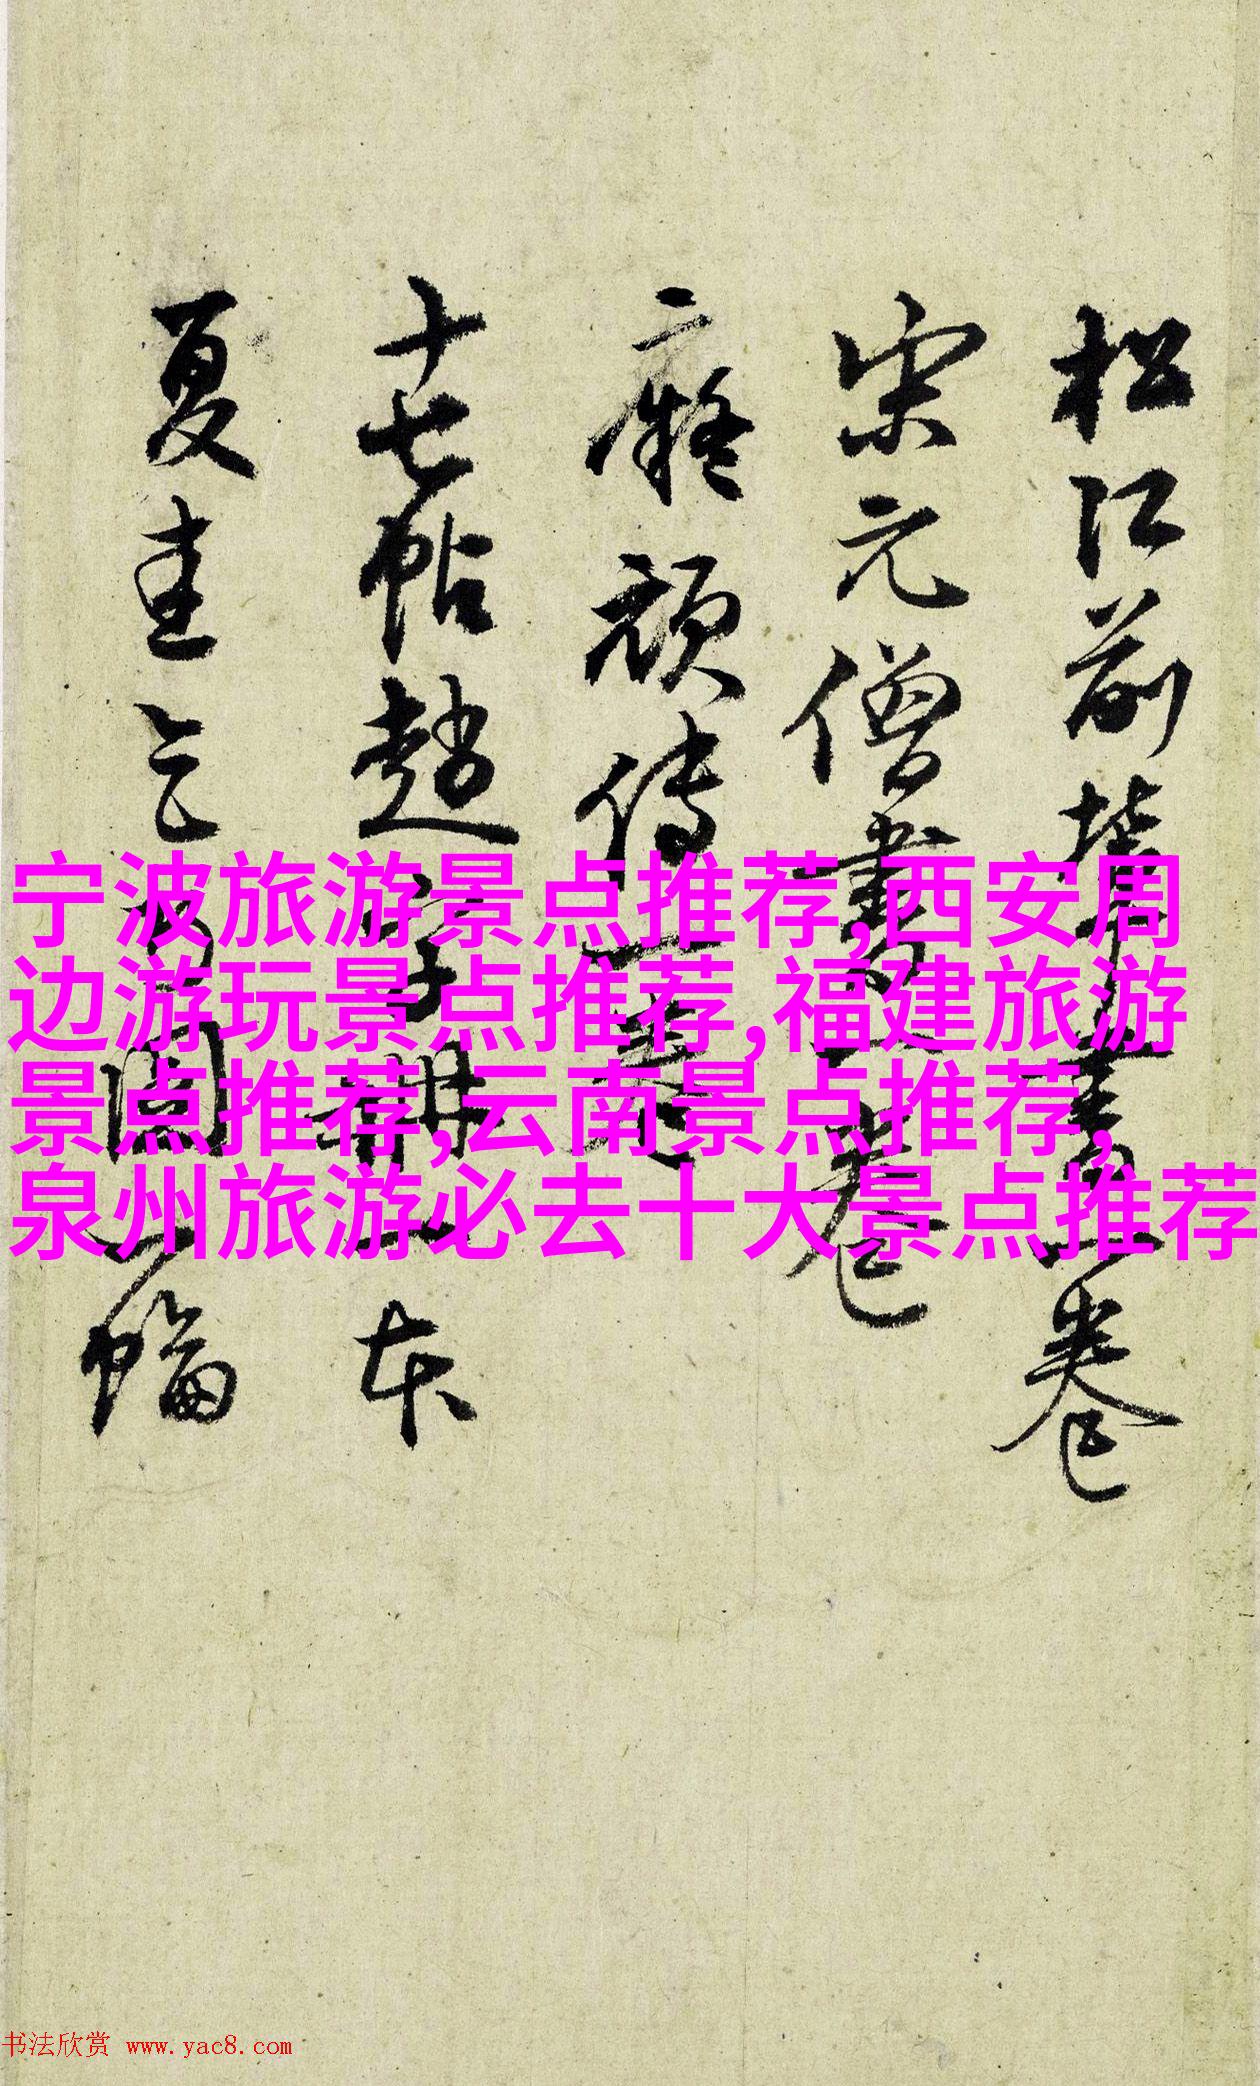 松江前輩書一卷
宋元僧書一卷
二癡頑傳一卷
十七帖趙字 本
夏圭 圖一幅
宁波旅游景点推荐,西安周
边游玩景点推荐,福建旅游
景点推荐,云南景点推荐,
泉州旅游必去十大景点推荐
书法欣赏 www.yac8.com